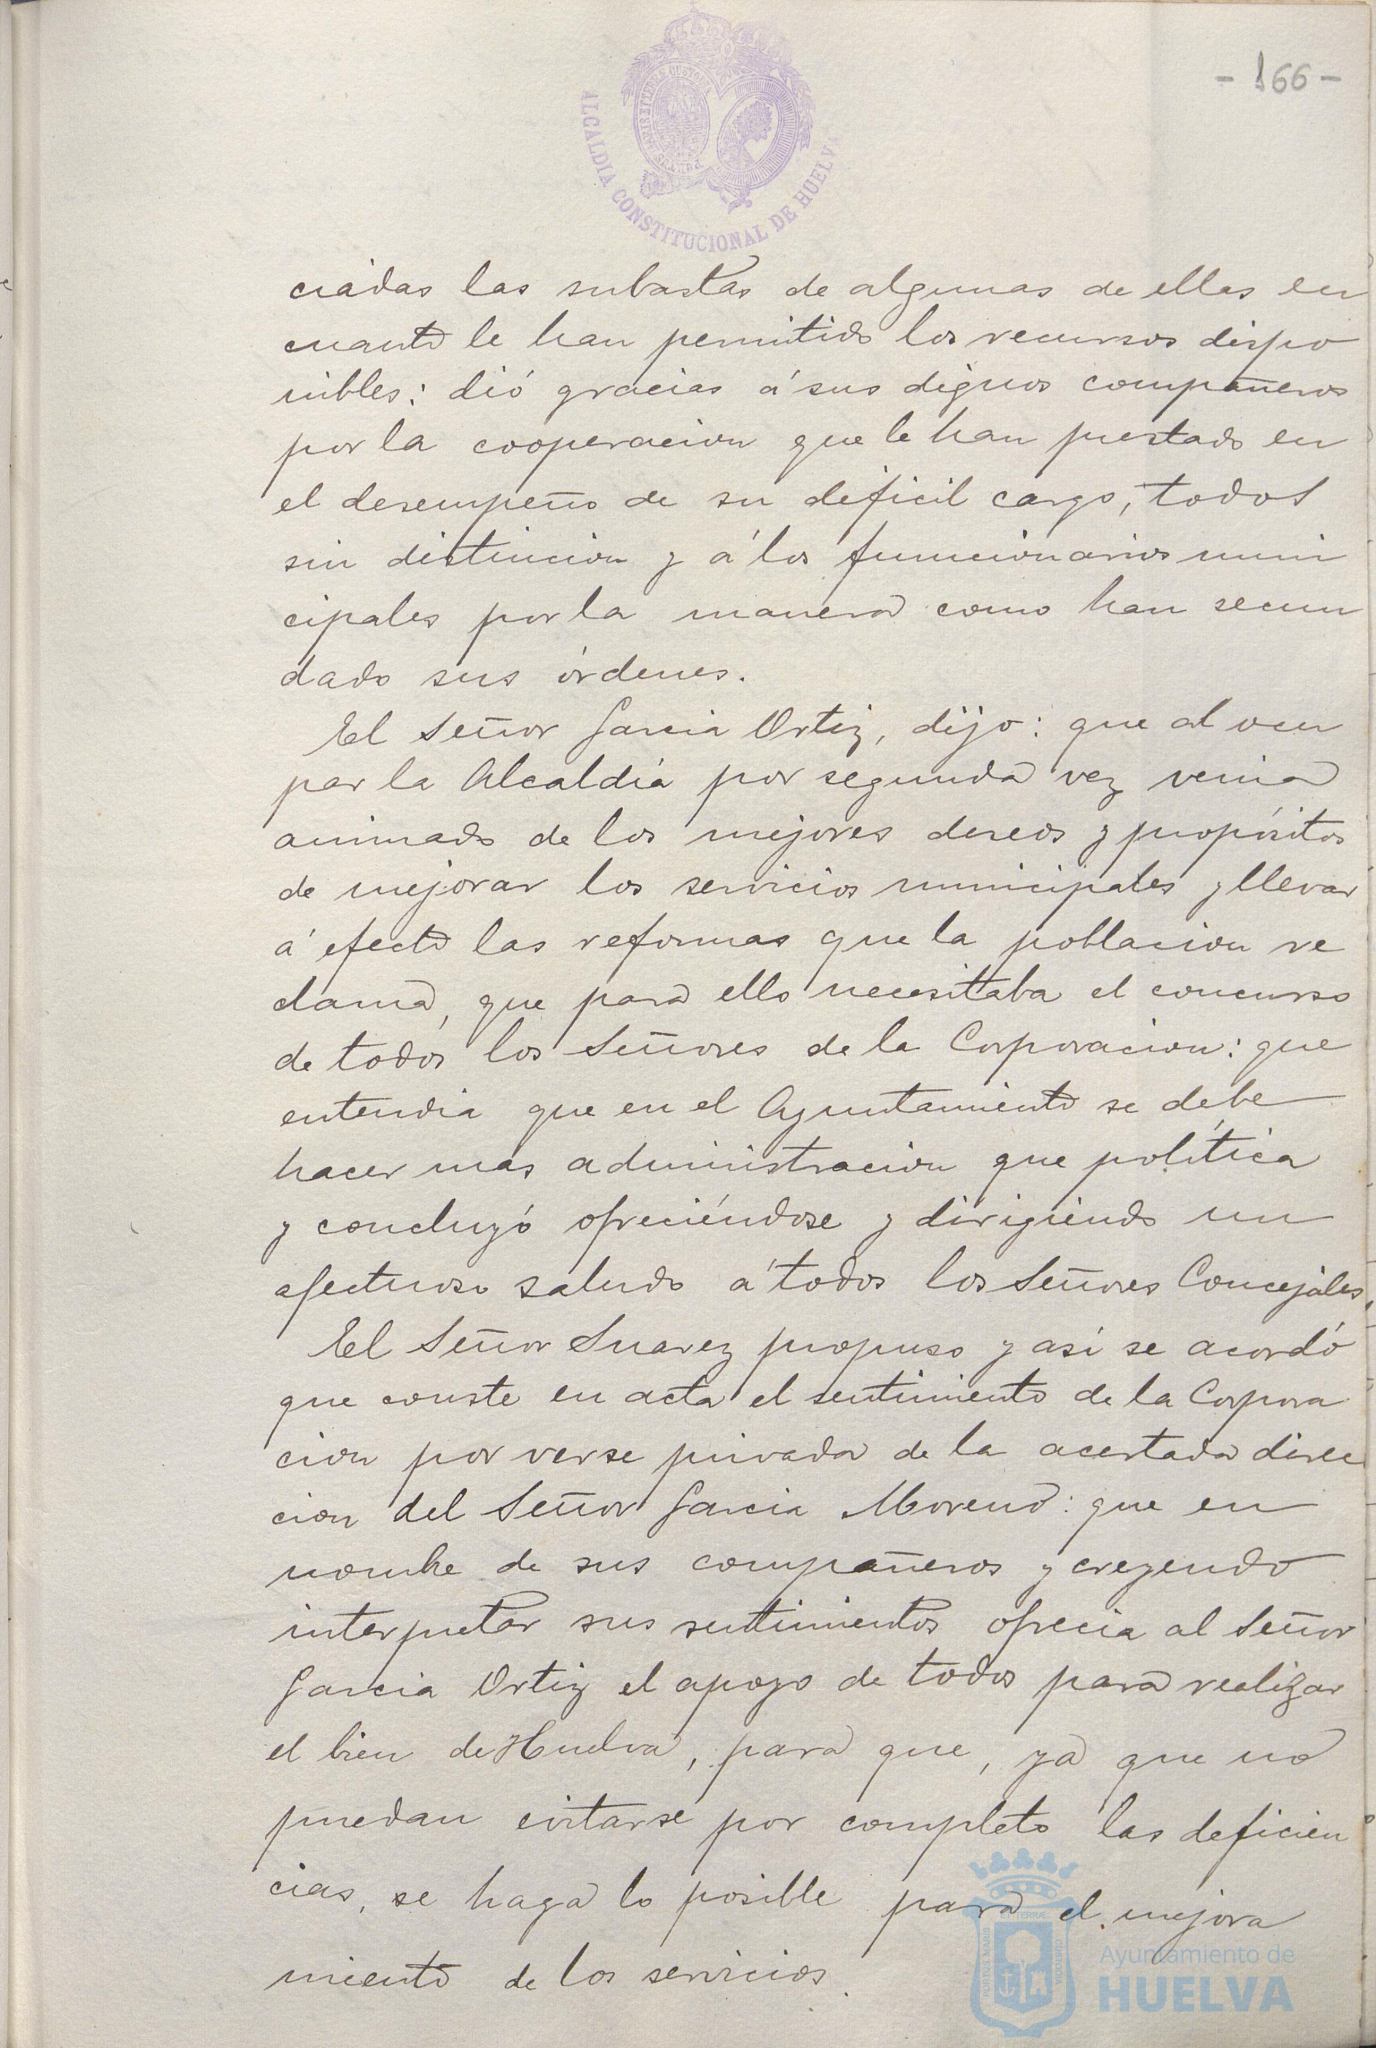 - 166 -
ALCALDIA CONSTITUCIONAL DE HUELVA
ciadas las subastas de algunas de ellas en
cuanto le han permitido los recursos dispo
nibles: dió gracias á sus dignos compañeros
por la cooperacion que le han prestado en
el desempeño de su dificil cargo, todos
sin distincion y á los funcionarios muni
cipales por la manera como han secun
dado sus órdenes.
El Señor Garcia Ortiz, dijo: que al ocu
par la Alcaldía por segunda vez venia
animado de los mejores deseos y propósitos
de mejorar los servicios municipales y llevar
á efecto las reformas que la poblacion re
clama, que para ello necesitaba el concurso
de todos los Señores de la Corporacion: que
entendia que en el Ayuntamiento se debe
hacer mas administracion que política
y concluyó ofreciéndose y dirigiendo un
afectuoso saludo á todos los Señores Concejales.
El Señor Suarez propuso y así se acordó
que conste en acta el sentimiento de la Corpora
cion por verse privada de la acertada direc
cion del Señor Garcia Moreno: que en
nombre de sus compañeros y creyendo
interpretar sus sentimientos ofrecia al Señor
Garcia Ortiz el apoyo de todos para realizar
el bien de Huelva, para que, ya que no
puedan evitarse por completo las deficien
cias, se haga lo posible para el mejora
miento de los servicios.
Ayuntamiento de
HUELVA